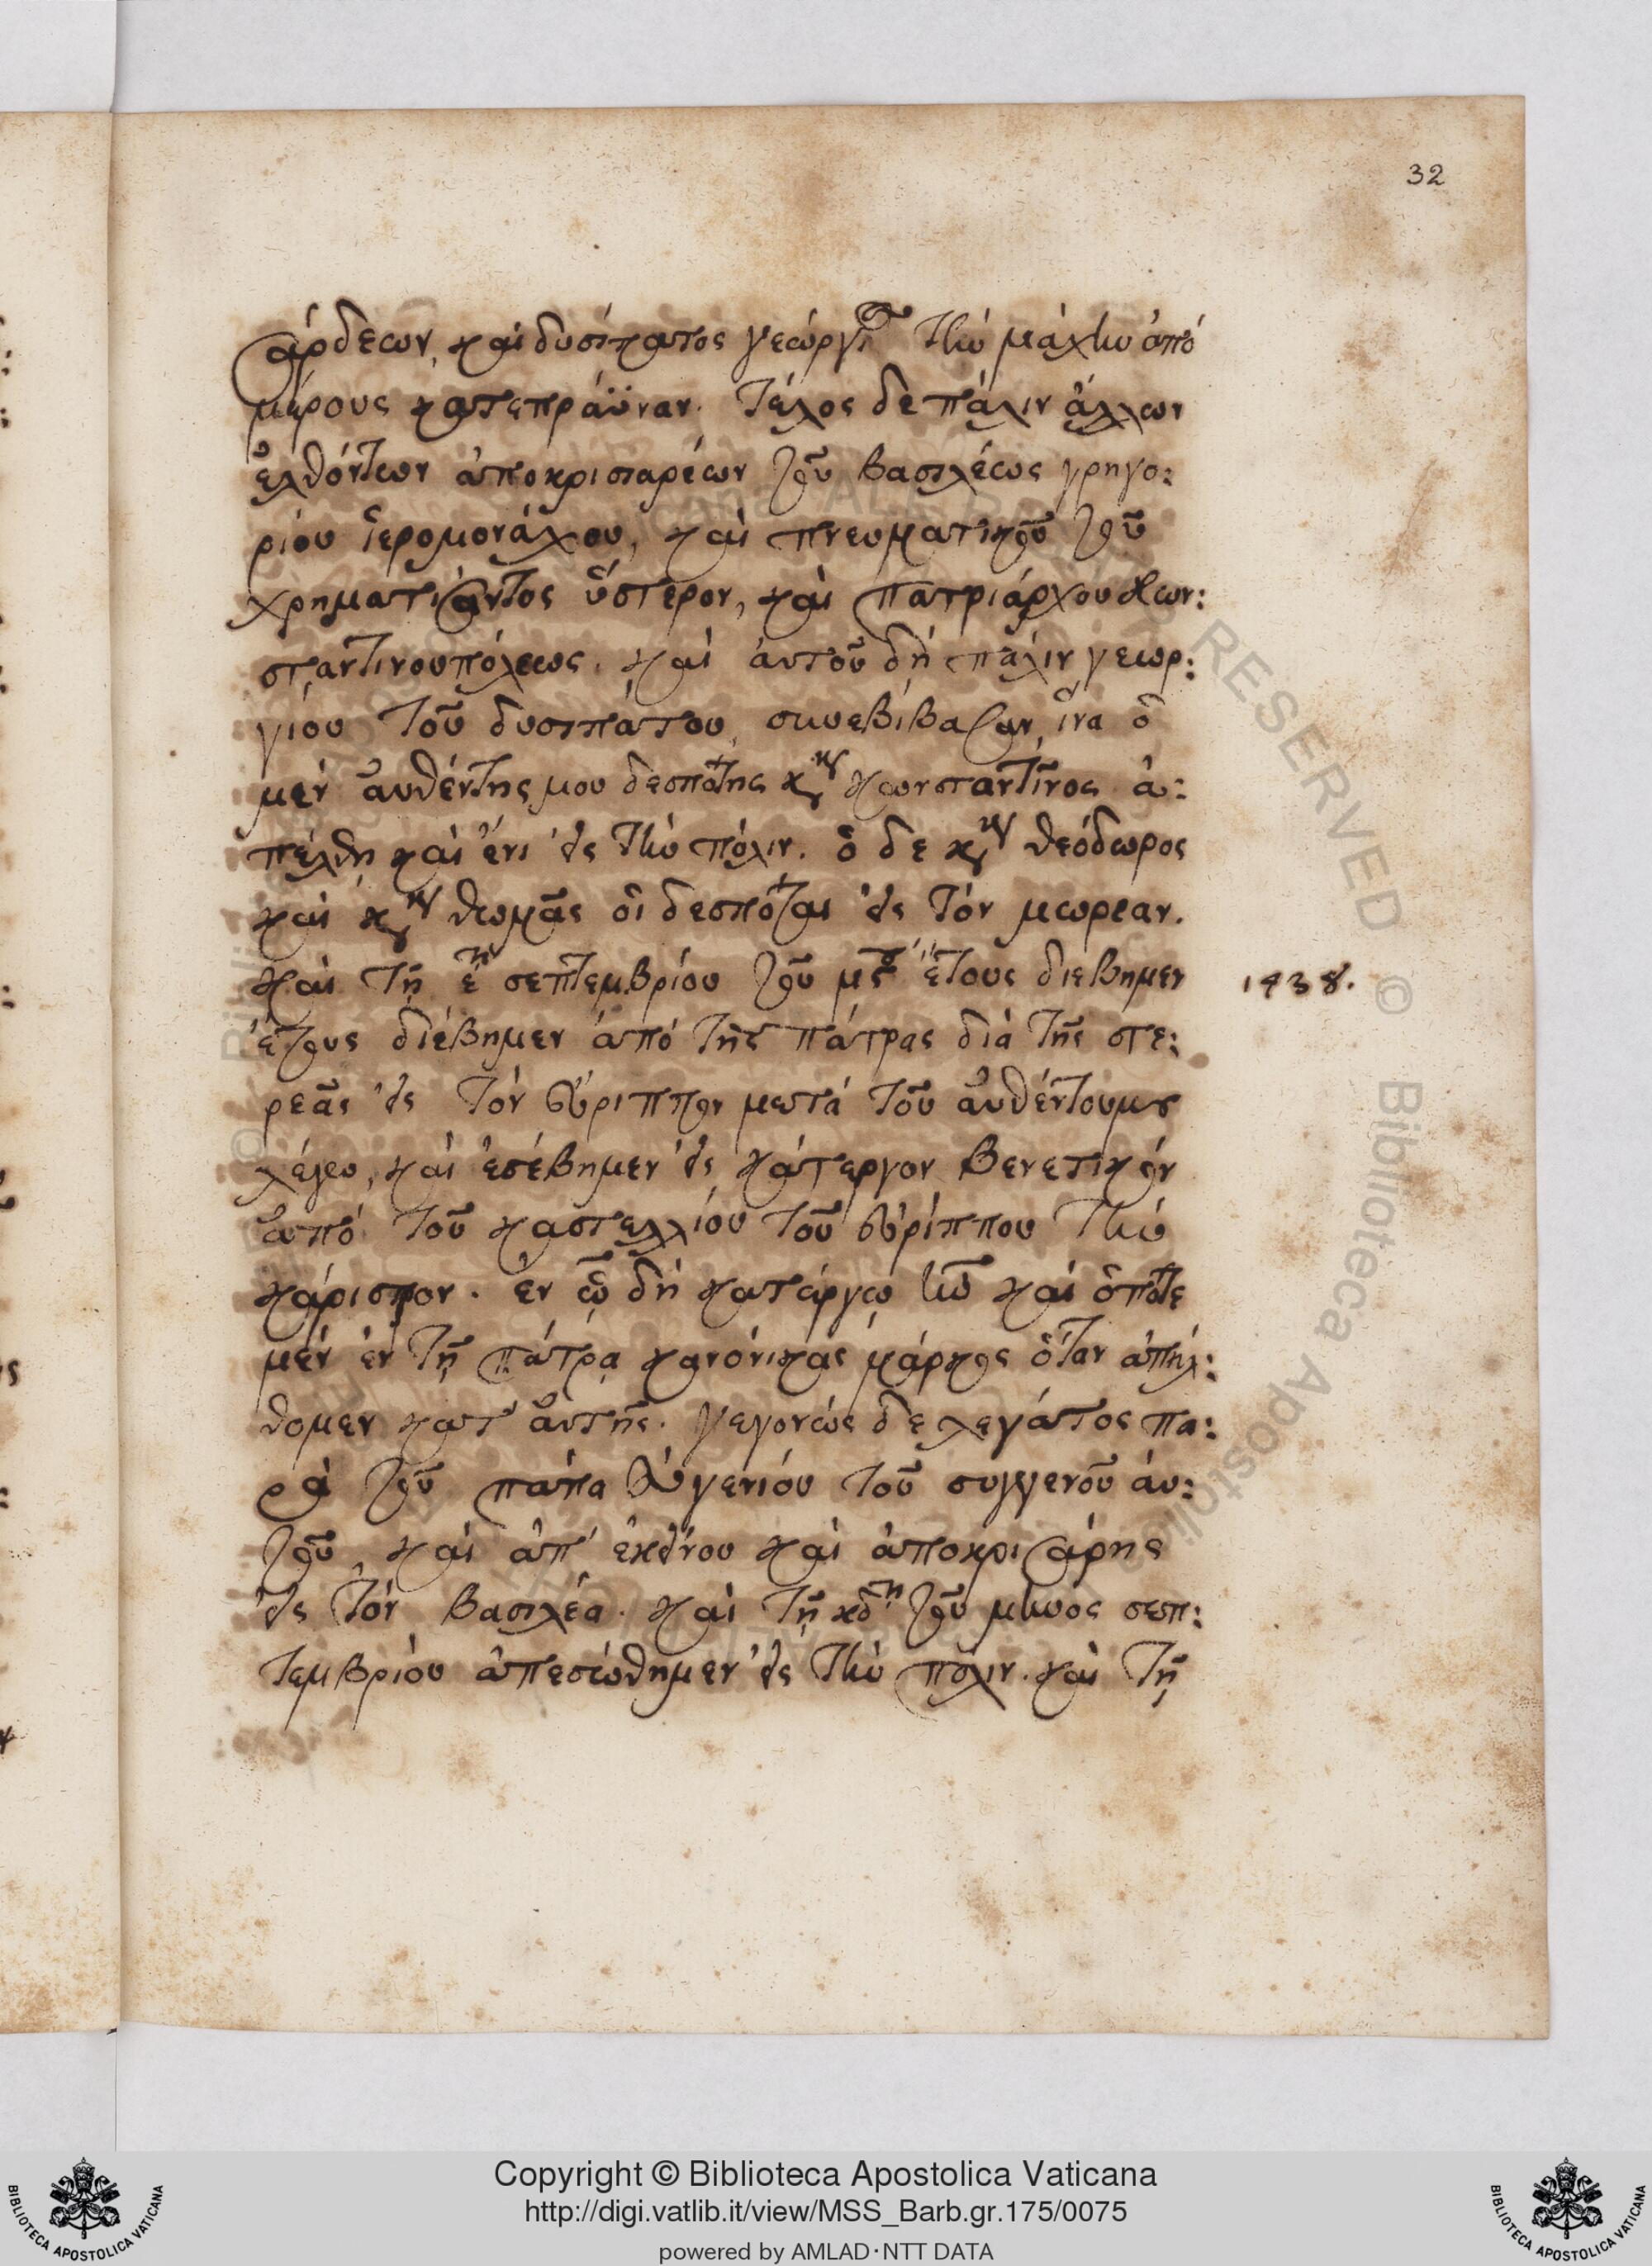 32
σάρδεων, καὶ δυσύπατος γεώργιος τὴν μάχην ἀπό
μέρους κατεπράϋναν. τέλος δε πάλιν ἄλλων
ἐλθόντων ἀποκρισιαρέων τοῦ βασιλέως γρηγο:
ρίου ἱερομονάχου, καὶ πνευματικοῦ τοῦ
χρηματίσαντος ὕστερον, καὶ πατριάρχου κων:
σταντινουπόλεως. καὶ ἀυτοῦ δὴ πάλιν γεωρ:
γίου τοῦ δυσιπάτου, συνεβίβασαν, ἵνα ὁ
μὲν ἀυθέντης μου δεσπότης κὺρ κωνσταντῖνος ἀ:
πέλθη καὶ ἔνι εἰς τὴν πόλιν. ὁ δε κὺρ θεόδωρος
καὶ κὺρ θωμᾶς ὁι δεσπόται εἰς τὸν μωρεαν.
καὶ τῆ ε΄η σεπτεμβρίου τοῦ μϛου ἔτους διεβημεν
ἔτους διέβημεν ἀπό τῆς πάτρας διὰ τῆς στε:
ρεᾶς εἰς τὸν εὔριππον μετά τοῦ ἀυθέντου μου
λέγω, καὶ ἐσέβημεν εἰς κάτεργον βενετικὸν
ἀπό τοῦ καστελλίου τοῦ εὐρίππου τὴν
κάριστον. ἐν ᾧ δὴ κατέργω ἦν καὶ ὁπότε
μὲν ἐν τῆ πάτρα κανόνικας μάρκος ὅταν ἀπήλ:
θομεν κατ' ἀυτῆς. γεγονώς δε λεγάτος πα:
ρὰ τοῦ πάπα ἐυγενίου τοῦ συγγενοῦ ἀυ:
τοῦ, καὶ ἀπ' ἐκείνου καὶ ἀποκρισάρης
εἰς τὸν βασιλέα. καὶ τῆ κδη τοῦ μηνὸς σεπ:
τεμβρίου ἀπεσώθημεν εἰς τὴν πόλιν. καὶ τῆ
1438.
Copyright © Biblioteca Apostolica Vaticana
http://digi.vatlib.it/view/MSS_Barb.gr.175/0075
powered by AMLAD·NTT DATA
BIBLIOTECA APOSTOLICA VATICANA
BIBLIOTECA APOSTOLICA VATICANA